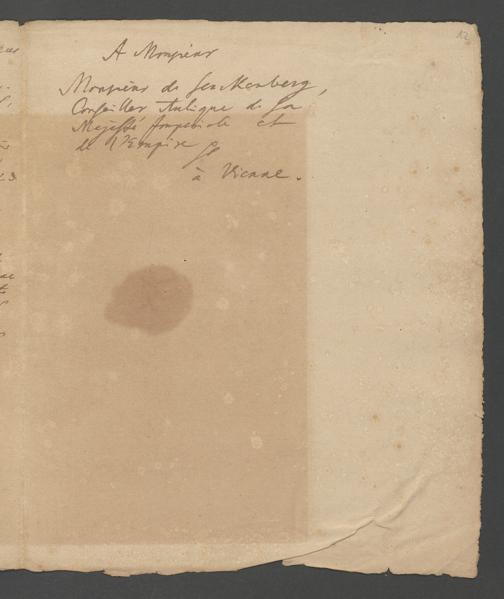 A Monsieur
Monsieur de Senckenberg,
Conseiller Aulique de Sa
Majesté Imperiale et
de l'Empire
à Vienne.
12